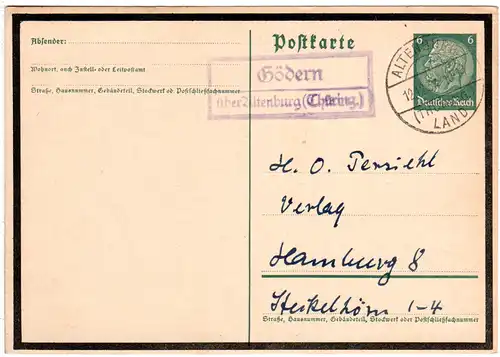 Absender:
Wohnort, auch Zustell- oder Leitpostamt
Straße, Hausnummer, Gebäudeteil, Stockwerk od. Postschließfachnummer
Postkarte
6 6
Deutsches Reich
ALTE
12
(TH
LAND
Gödern
über Altenburg (Thüring.)
H. O. Persiehl
Verlag
Hamburg 8
Steckelhörn 1-4
Straße, Hausnummer, Gebäudeteil, Stockwerk oder Postschließfachnummer